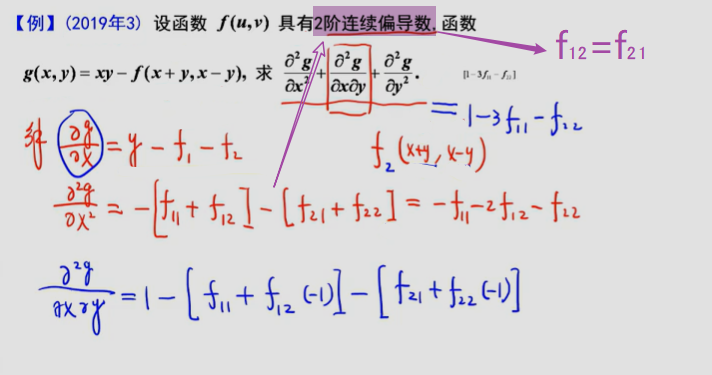 【例】(2019年3) 设函数 f(u,v) 具有2阶连续偏导数, 函数
f₁₂=f₂₁
g(x,y)=xy−f(x+y,x−y), 求 ∂²g/∂x²+∂²g/∂x∂y+∂²g/∂y². [1−3f₁₁−f₂₂]
=1−3f₁₁−f₂₂
解 ∂g/∂x=y−f₁−f₂
f₂(x+y,x−y)
∂²g/∂x²=−[f₁₁+f₁₂]−[f₂₁+f₂₂]=−f₁₁−2f₁₂−f₂₂
∂²g/∂x∂y=1−[f₁₁+f₁₂(-1)]−[f₂₁+f₂₂(-1)]